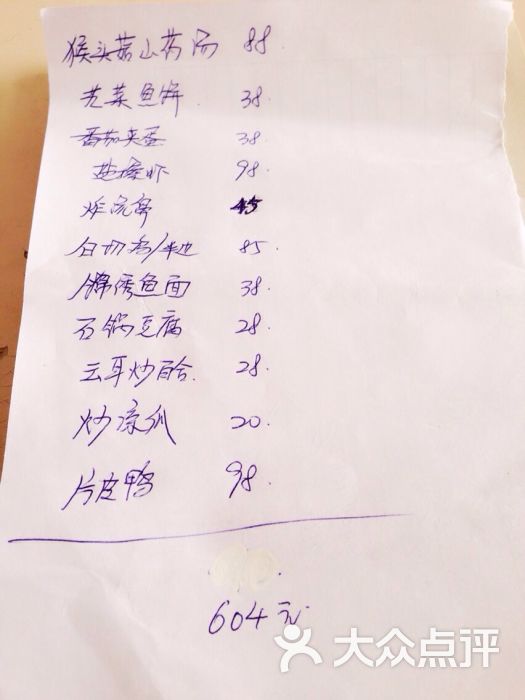 猴头菇山药汤 88.
芫菜鱼饼. 38.
番茄夹蛋 38.
盐焗虾 98.
炸 45
白切鸡/半边 85.
锦绣鱼面 38.
石锅豆腐 28.
云耳炒百合. 28.
炒凉瓜 20.
片皮鸭 98.
604元
大众点评